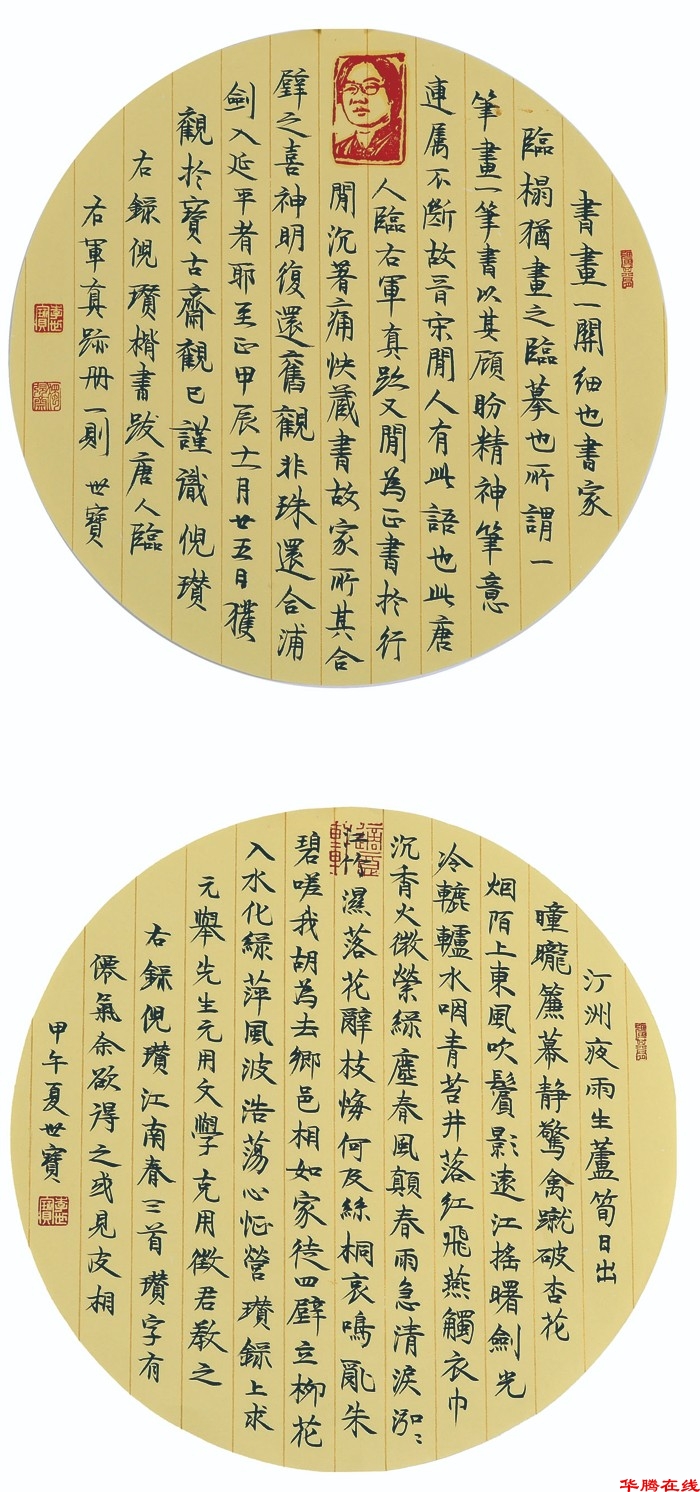 書畫一關細也書家
臨榻猶畫之臨摹也所謂一
筆畫一筆書以其顧盼精神筆意
連属不斷故晉宋間人有此語也此唐
人臨右軍真跡又間為正書於行
間沉著痛快藏書故家所其合
璧之喜神明復還舊觀非珠還合浦
劍入延平者耶至正甲辰十一月廿五日獲
觀於寶古齋觀已謹識倪瓚
右錄倪瓚楷書跋唐人臨
右軍真跡冊一則 世寶
汀洲夜雨生蘆筍日出
曈曨簾幕静驚禽蹴破杏花
烟陌上東風吹鬢影遠江搖曙劍光
冷轆轤水咽青苔井落紅飛燕觸衣巾
沉香火微縈綠塵春風顛春雨急清淚泓泓
江竹濕落花辭枝悔何及絲桐哀鳴亂朱
碧嗟我胡為去鄉邑相如家徒四壁立柳花
入水化綠萍風波浩荡心怔營瓚錄上求
元舉先生元用文學克用徵君教之
右錄倪瓚江南春三首瓚字有
僊氣余欲得之或見皮相
甲午夏世寶
华腾在线